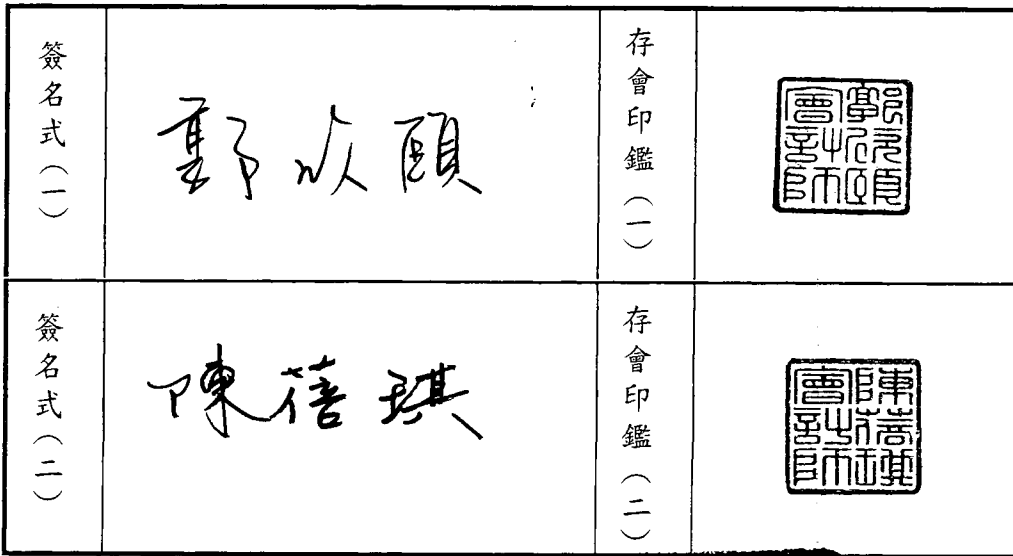 簽名式（一）
郭欣頤
存會印鑑（一）
郭欣頤會計師
簽名式（二）
陳蓓琪
存會印鑑（二）
陳蓓琪會計師